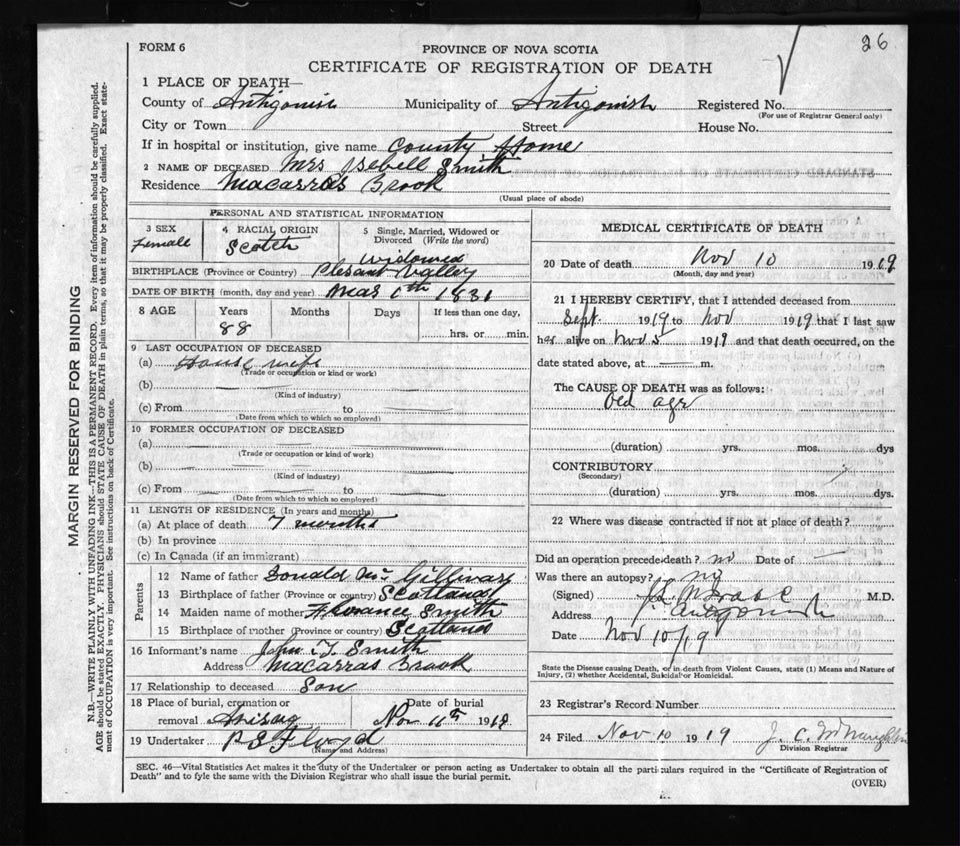 26
FORM 6
PROVINCE OF NOVA SCOTIA
CERTIFICATE OF REGISTRATION OF DEATH
1 PLACE OF DEATH—
County of Antigonish Municipality of Antigonish Registered No.
(For use of Registrar General only)
City or Town Street House No.
If in hospital or institution, give name County Home
2 NAME OF DECEASED Mrs Isebell Smith
Residence Macarras Brook
(Usual place of abode)
PERSONAL AND STATISTICAL INFORMATION
3 SEX Female
4 RACIAL ORIGIN Scotch
5 Single, Married, Widowed or Divorced (Write the word) Widowed
BIRTHPLACE (Province or Country) Plesant Valley
DATE OF BIRTH (month, day and year) 1831
8 AGE Years Months Days If less than one day,
88 hrs. or min.
9 LAST OCCUPATION OF DECEASED
(a) House wife
(Trade or occupation or kind of work)
(b)
(Kind of industry)
(c) From to
(Date from which to which so employed)
10 FORMER OCCUPATION OF DECEASED
(a)
(Trade or occupation or kind of work)
(b)
(Kind of industry)
(c) From to
(Date from which to which so employed)
11 LENGTH OF RESIDENCE (In years and months)
(a) At place of death 7 months
(b) In province
(c) In Canada (if an immigrant)
Parents
12 Name of father Donald Mc Gillivary
13 Birthplace of father (Province or country) Scotland
14 Maiden name of mother Florance Smith
15 Birthplace of mother (Province or country) Scotland
16 Informant's name John Smith
Address Macarras Brook
17 Relationship to deceased Son
18 Place of burial, cremation or Date of burial
removal Arisag Nov 11th 1919
19 Undertaker Floyd
(Name and Address)
MEDICAL CERTIFICATE OF DEATH
20 Date of death Nov 10 1919
(Month, day and year)
21 I HEREBY CERTIFY, that I attended deceased from
Sept 1919 to Nov 1919 that I last saw
her alive on Nov 5 1919 and that death occurred, on the
date stated above, at m.
The CAUSE OF DEATH was as follows:
Old age
(duration) yrs. mos. dys
CONTRIBUTORY
(Secondary)
(duration) yrs. mos. dys.
22 Where was disease contracted if not at place of death?
Did an operation precede death? no Date of
Was there an autopsy? no
(Signed) M.D.
Address Antigonish
Date Nov 10/19
State the Disease causing Death, or in death from Violent Causes, state (1) Means and Nature of
Injury, (2) whether Accidental, Suicidal or Homicidal.
23 Registrar's Record Number
24 Filed Nov 10 1919 J. C.
Division Registrar
SEC. 46—Vital Statistics Act makes it the duty of the Undertaker or person acting as Undertaker to obtain all the particulars required in the "Certificate of Registration of
Death" and to fyle the same with the Division Registrar who shall issue the burial permit.
(OVER)
MARGIN RESERVED FOR BINDING
N.B.—WRITE PLAINLY WITH UNFADING INK—THIS IS A PERMANENT RECORD. Every item of information should be carefully supplied.
AGE should be stated EXACTLY. PHYSICIANS should STATE CAUSE OF DEATH in plain terms, so that it may be properly classified. Exact state-
ment of OCCUPATION is very important. See instructions on back of Certificate.